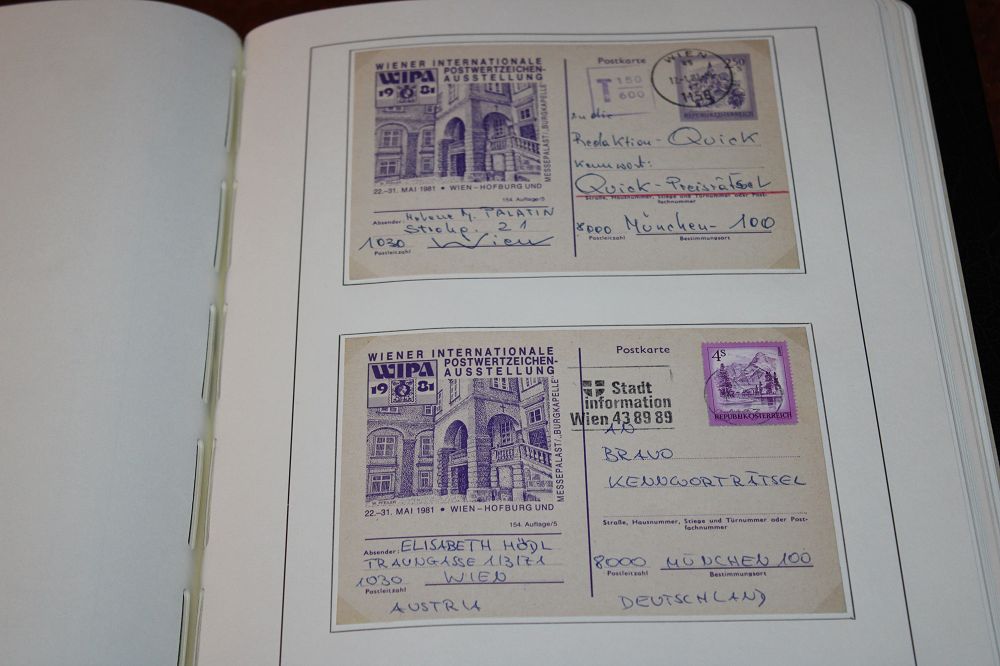 WIENER INTERNATIONALE
POSTWERTZEICHEN-
AUSSTELLUNG
WIPA
1981
MESSEPALAST/„BURGKAPELLE"
22.–31. MAI 1981 • WIEN–HOFBURG UND
154. Auflage/5
Absender: Helene M. PALATIN
Strohg. 21
1030 Wien
Postleitzahl
Postkarte
T 150
600
WIEN
1150
250
REPUBLIK ÖSTERREICH
An die
Redaktion - Quick
Kennwort:
Quick-Preisrätsel
Straße, Hausnummer, Stiege und Türnummer oder Post-
fachnummer
8000 München - 100
Postleitzahl Bestimmungsort
WIENER INTERNATIONALE
POSTWERTZEICHEN-
AUSSTELLUNG
WIPA
1981
MESSEPALAST/„BURGKAPELLE"
22.–31. MAI 1981 • WIEN–HOFBURG UND
154. Auflage/5
Absender: ELISABETH HÖDL
TRAUNGASSE 1/3/71
1030 WIEN
Postleitzahl
AUSTRIA
Postkarte
Stadt
information
Wien 43 89 89
4S
REPUBLIK ÖSTERREICH
AN
BRAVO
KENNWORTRÄTSEL
Straße, Hausnummer, Stiege und Türnummer oder Post-
fachnummer
8000 MÜNCHEN 100
Postleitzahl Bestimmungsort
DEUTSCHLAND